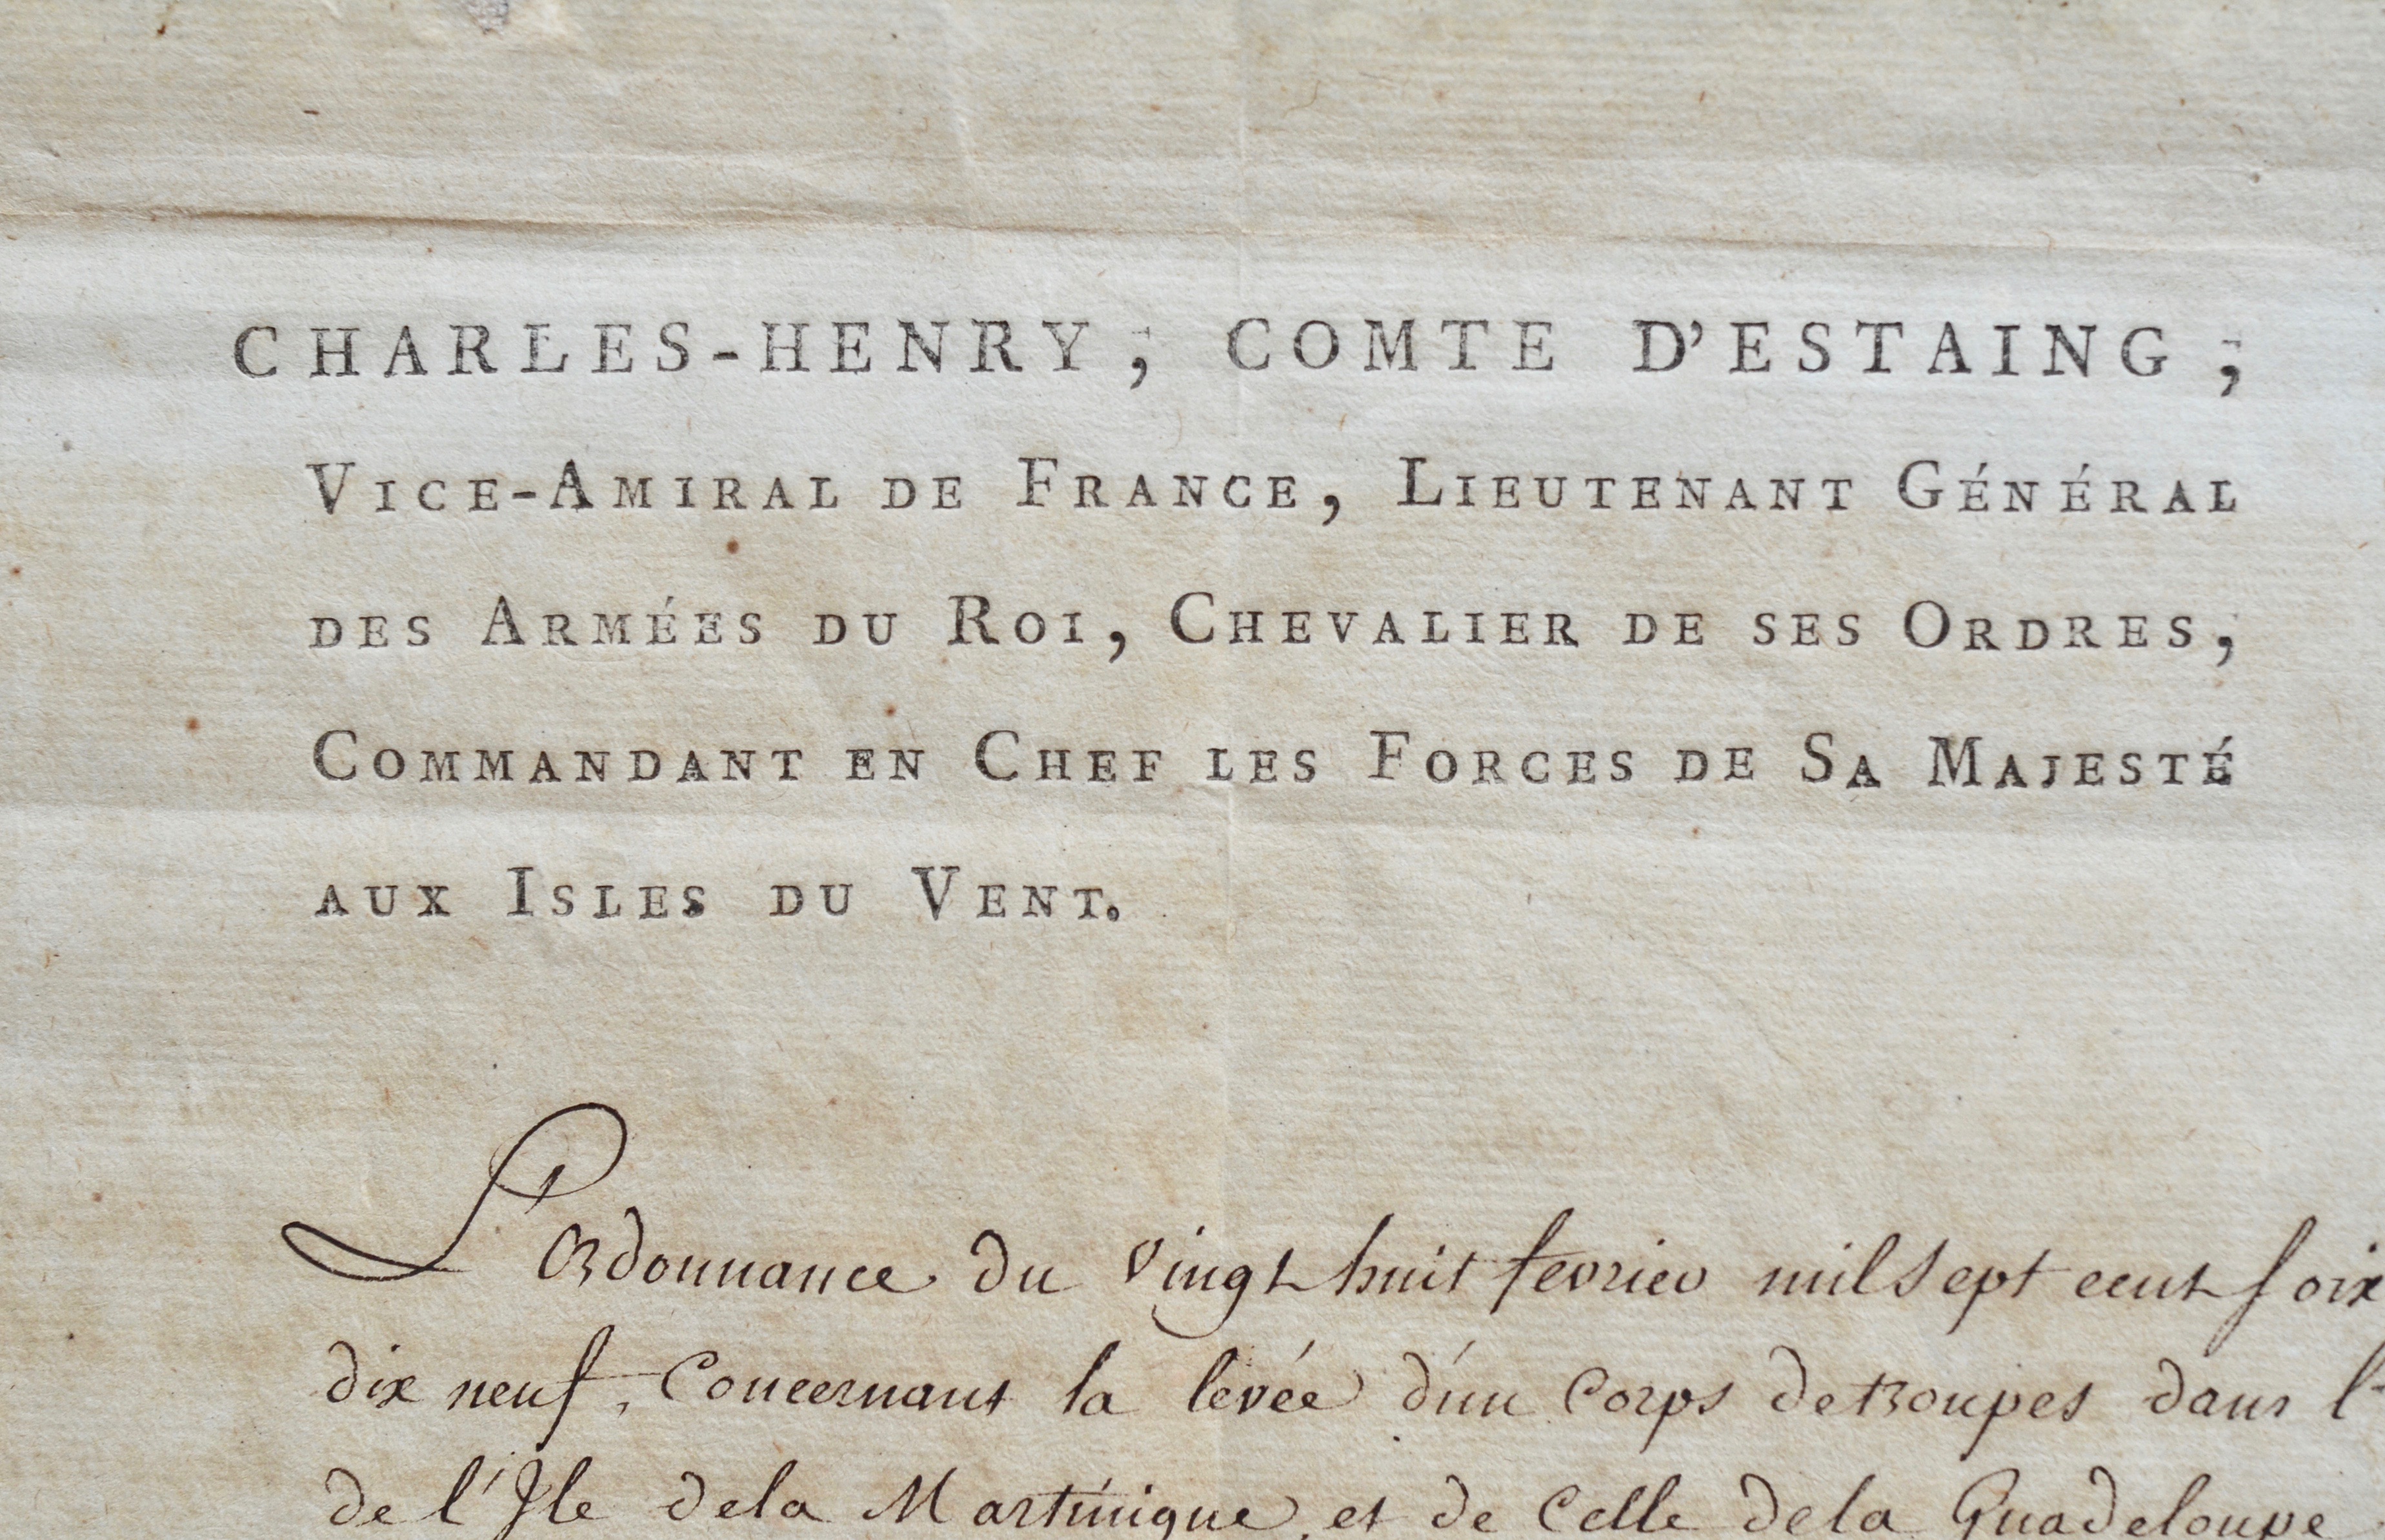 CHARLES-HENRY, COMTE D'ESTAING,
VICE-AMIRAL DE FRANCE, LIEUTENANT GÉNÉRAL
DES ARMÉES DU ROI, CHEVALIER DE SES ORDRES,
COMMANDANT EN CHEF LES FORCES DE SA MAJESTÉ
AUX ISLES DU VENT.
L'Ordonnance du vingt huit fevrier mil sept cent soix
dix neuf, Concernant la levée d'un Corps de troupes dans l'
de l'Ile de la Martinique, et de Celle de la Guadeloupe